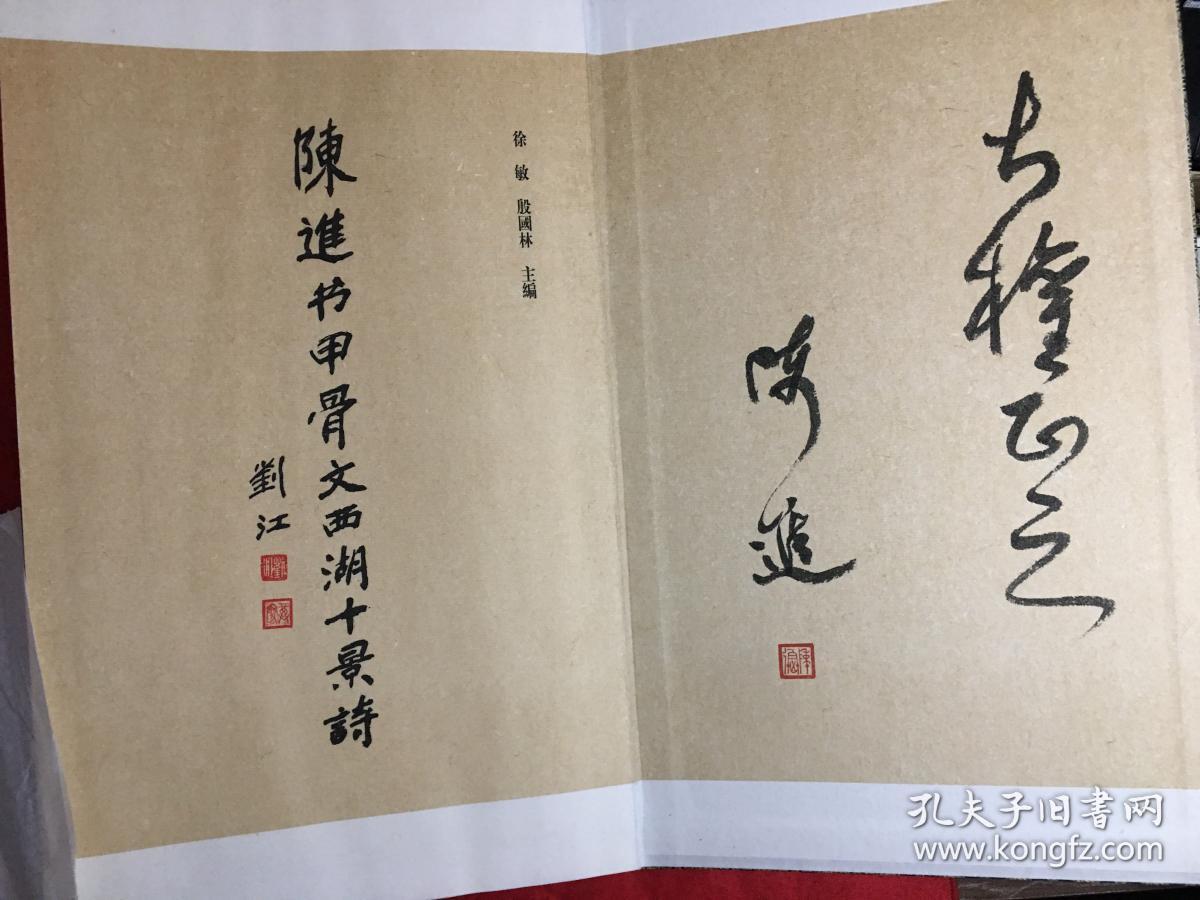 正之
陳進
徐敏 殷國林 主編
陳進书甲骨文西湖十景詩
劉江
孔夫子旧書网
www.kongfz.com